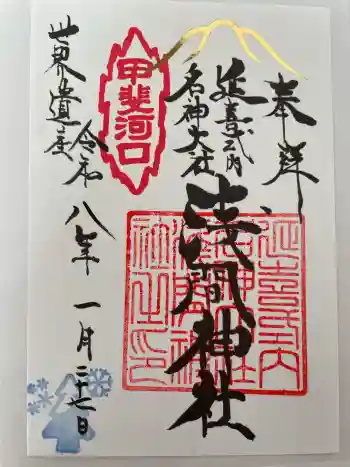 奉拝
延喜式内
名神大社
浅間神社
甲斐河口
世界遺産
令和八年一月二十七日
延喜式内
名神大社
浅間神
社之印